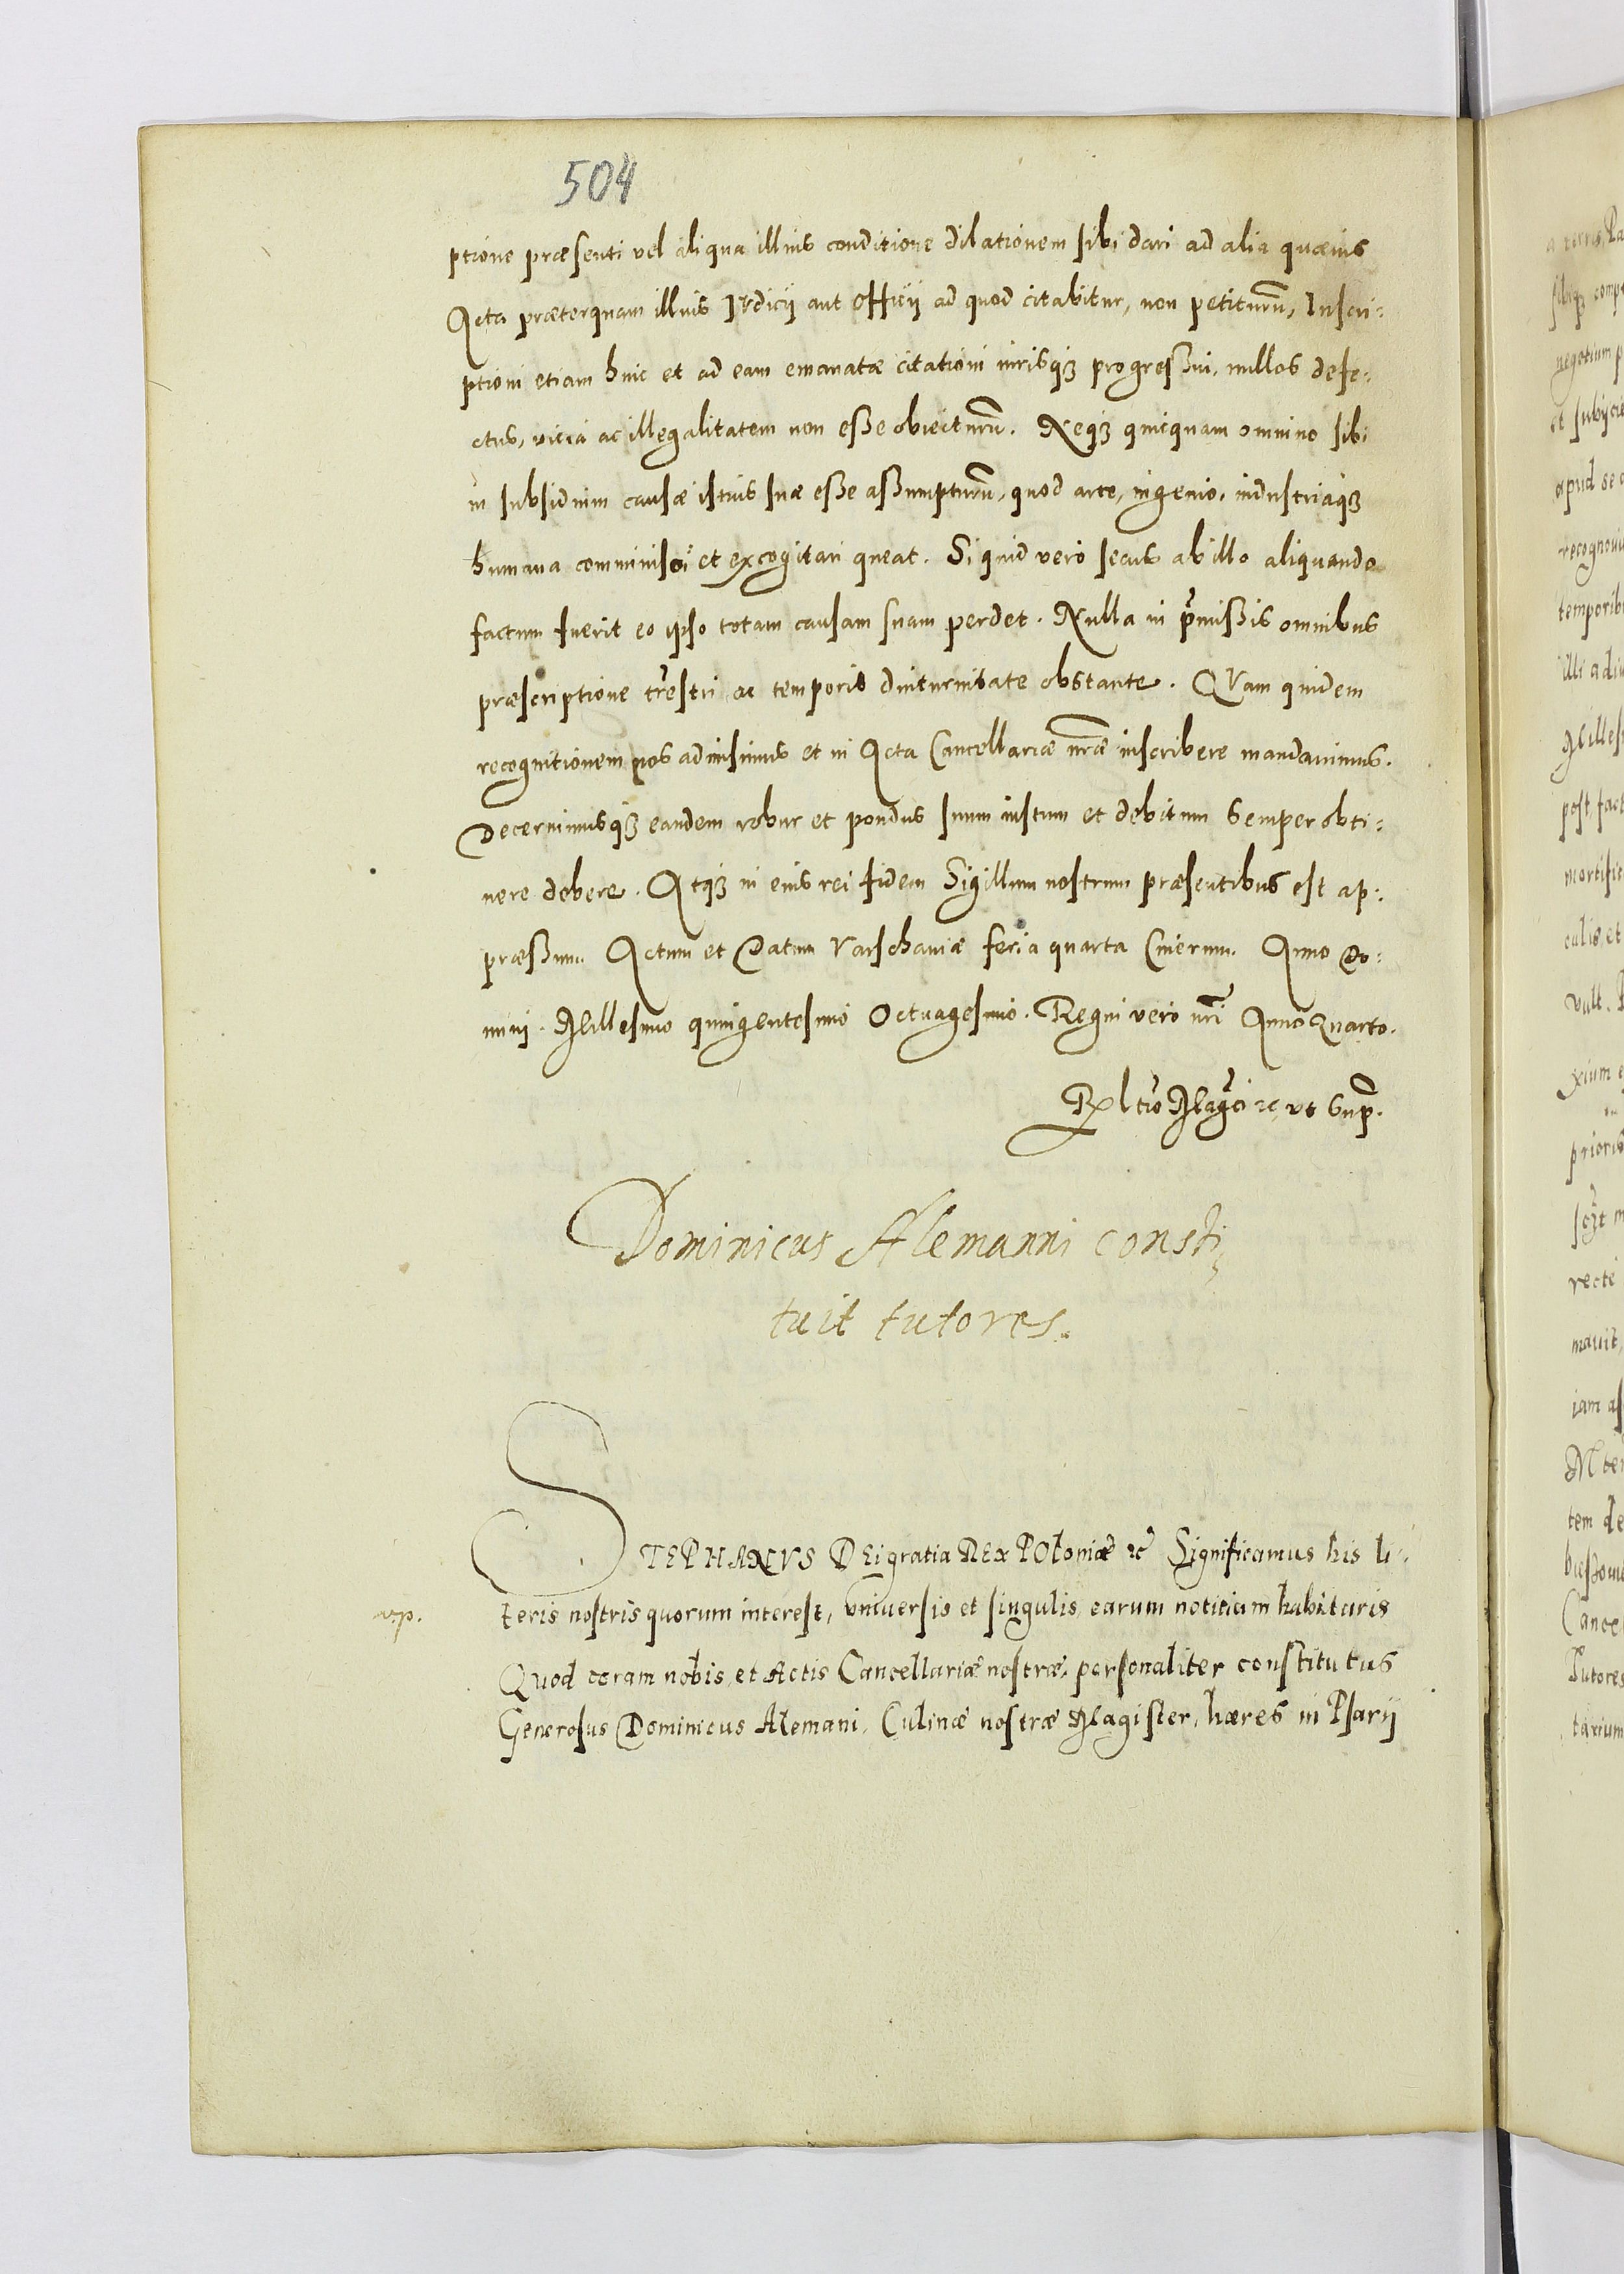 504
ptione præsenti vel aliqua illius conditione dilationem sibi dari ad alia quævis
Acta præterquam illius Iudicij aut Officij ad quod citabitur, non petiturū, Inscri:
ptioni etiam huic et ad eam emanatæ citationi iurisqꝫ progreßui, nullos defe:
ctus, vicia ac illegalitatem non eße obieciturū. Neqꝫ quicquam omnino sibi
in subsidium causæ istius suæ eße aßumpturū, quod arte, ingenio, industriaqꝫ
humana comminisci et excogitari queat. Si quid vero secus ab illo aliquando
factum fuerit eo ipso totam causam suam perdet. Nulla in p̄mißis omnibus
præscriptione tr̄estri ac temporis diuturnitate obstante. QVam quidem
recognitionem nos admisimus et in Acta Cancellariæ nr̄æ inscribere mandauimus.
Decernimusqꝫ eandem robur et pondus suum iustum et debitum semper obti:
nere debere. Atqꝫ in eius rei fidem Sigillum nostrum præsentibus est ap:
præßum. Actum et Datum Varschauiæ feria quarta Cinerum. Anno Do:
mini. Millesimo quingentesimo Octuagesimo. Regni vero nr̄i Anno Quarto.
Rltio Magci ꝛc ut supͣ.
Dominicus Alemanni consti
tuit tutores.
STEPHANVS DEi gratia REx POloniæ ꝛc Significamus his li:
rzp.
teris nostris quorum interest, vniuersis et singulis, earum notitiam habituris
Quod coram nobis, et Actis Cancellariæ nostræ, personaliter constitutus
Generosus Dominicus Alemani, Culinæ nostræ Magister, hæres in Psarij